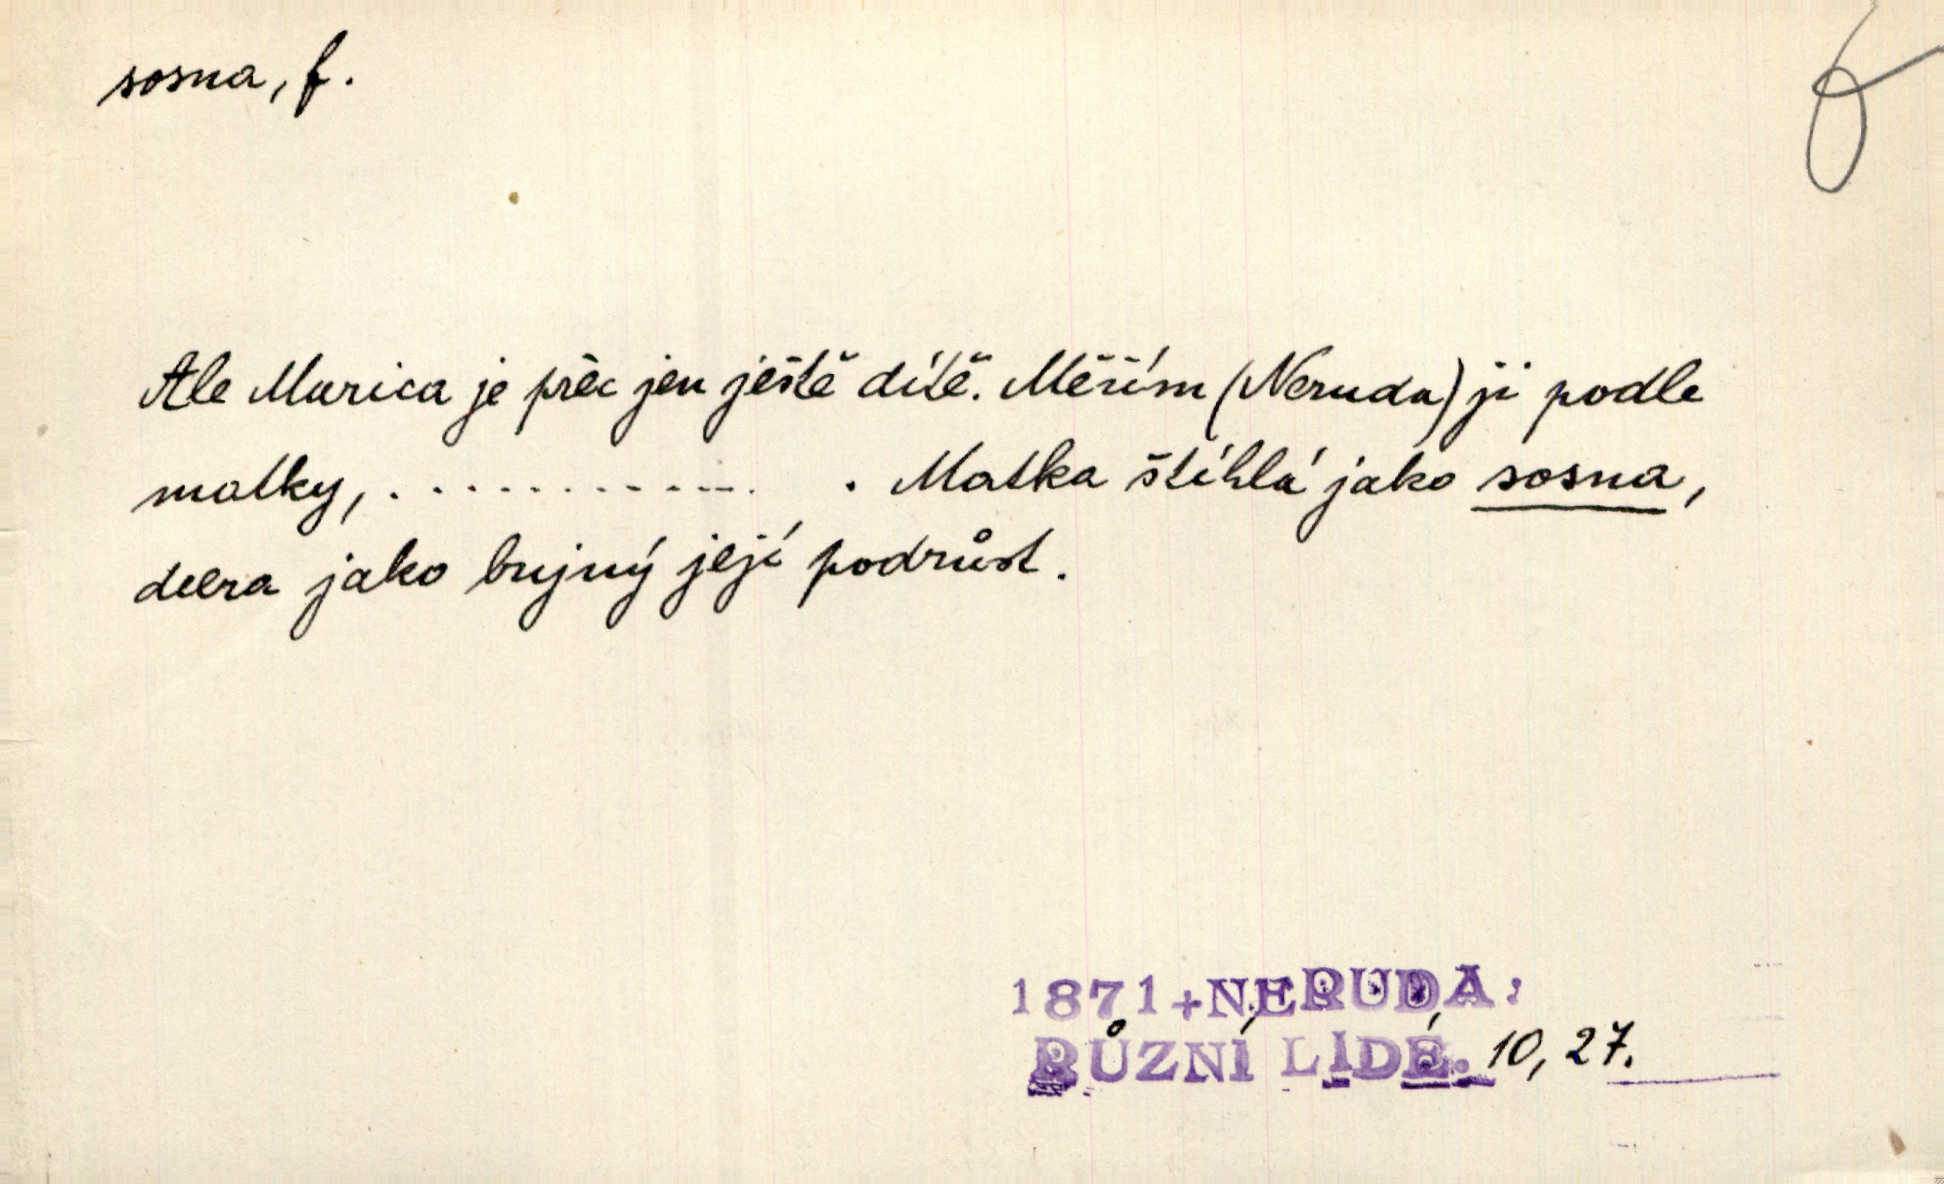 sosna, f.
Ale Marica je přec jen ještě dítě. Měřím (Neruda) ji podle
matky, . . . . . . . . . . . . . Matka štíhlá jako sosna,
dcera jako bujný její podrůst.
1871+NERUDA:
RŮZNÍ LIDÉ. 10, 27.